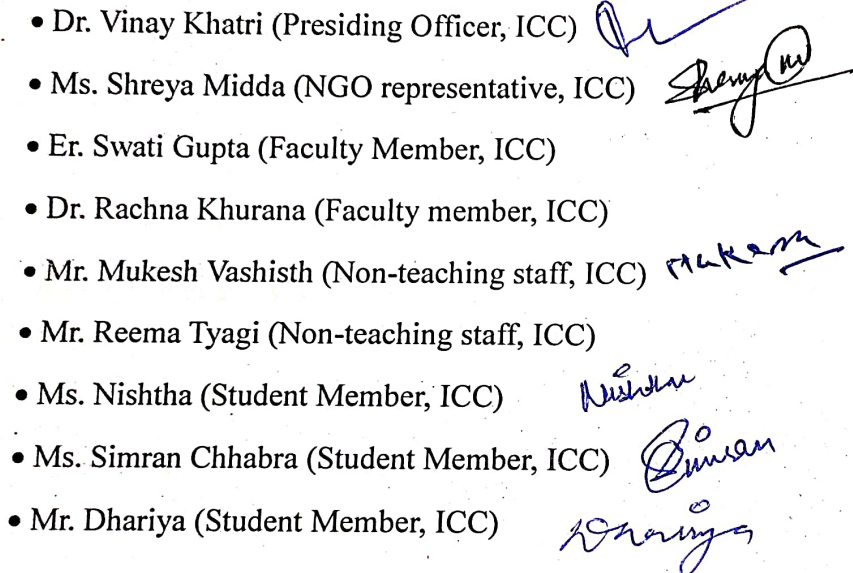 • Dr. Vinay Khatri (Presiding Officer, ICC)
• Ms. Shreya Midda (NGO representative, ICC)
• Er. Swati Gupta (Faculty Member, ICC)
• Dr. Rachna Khurana (Faculty member, ICC)
• Mr. Mukesh Vashisth (Non-teaching staff, ICC) Mukesh
• Mr. Reema Tyagi (Non-teaching staff, ICC)
• Ms. Nishtha (Student Member, ICC) Nishtha
• Ms. Simran Chhabra (Student Member, ICC) Simran
• Mr. Dhariya (Student Member, ICC) Dhariya